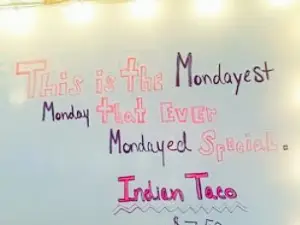 This is the Mondayest
Monday that Ever
Mondayed Special.
Indian Taco